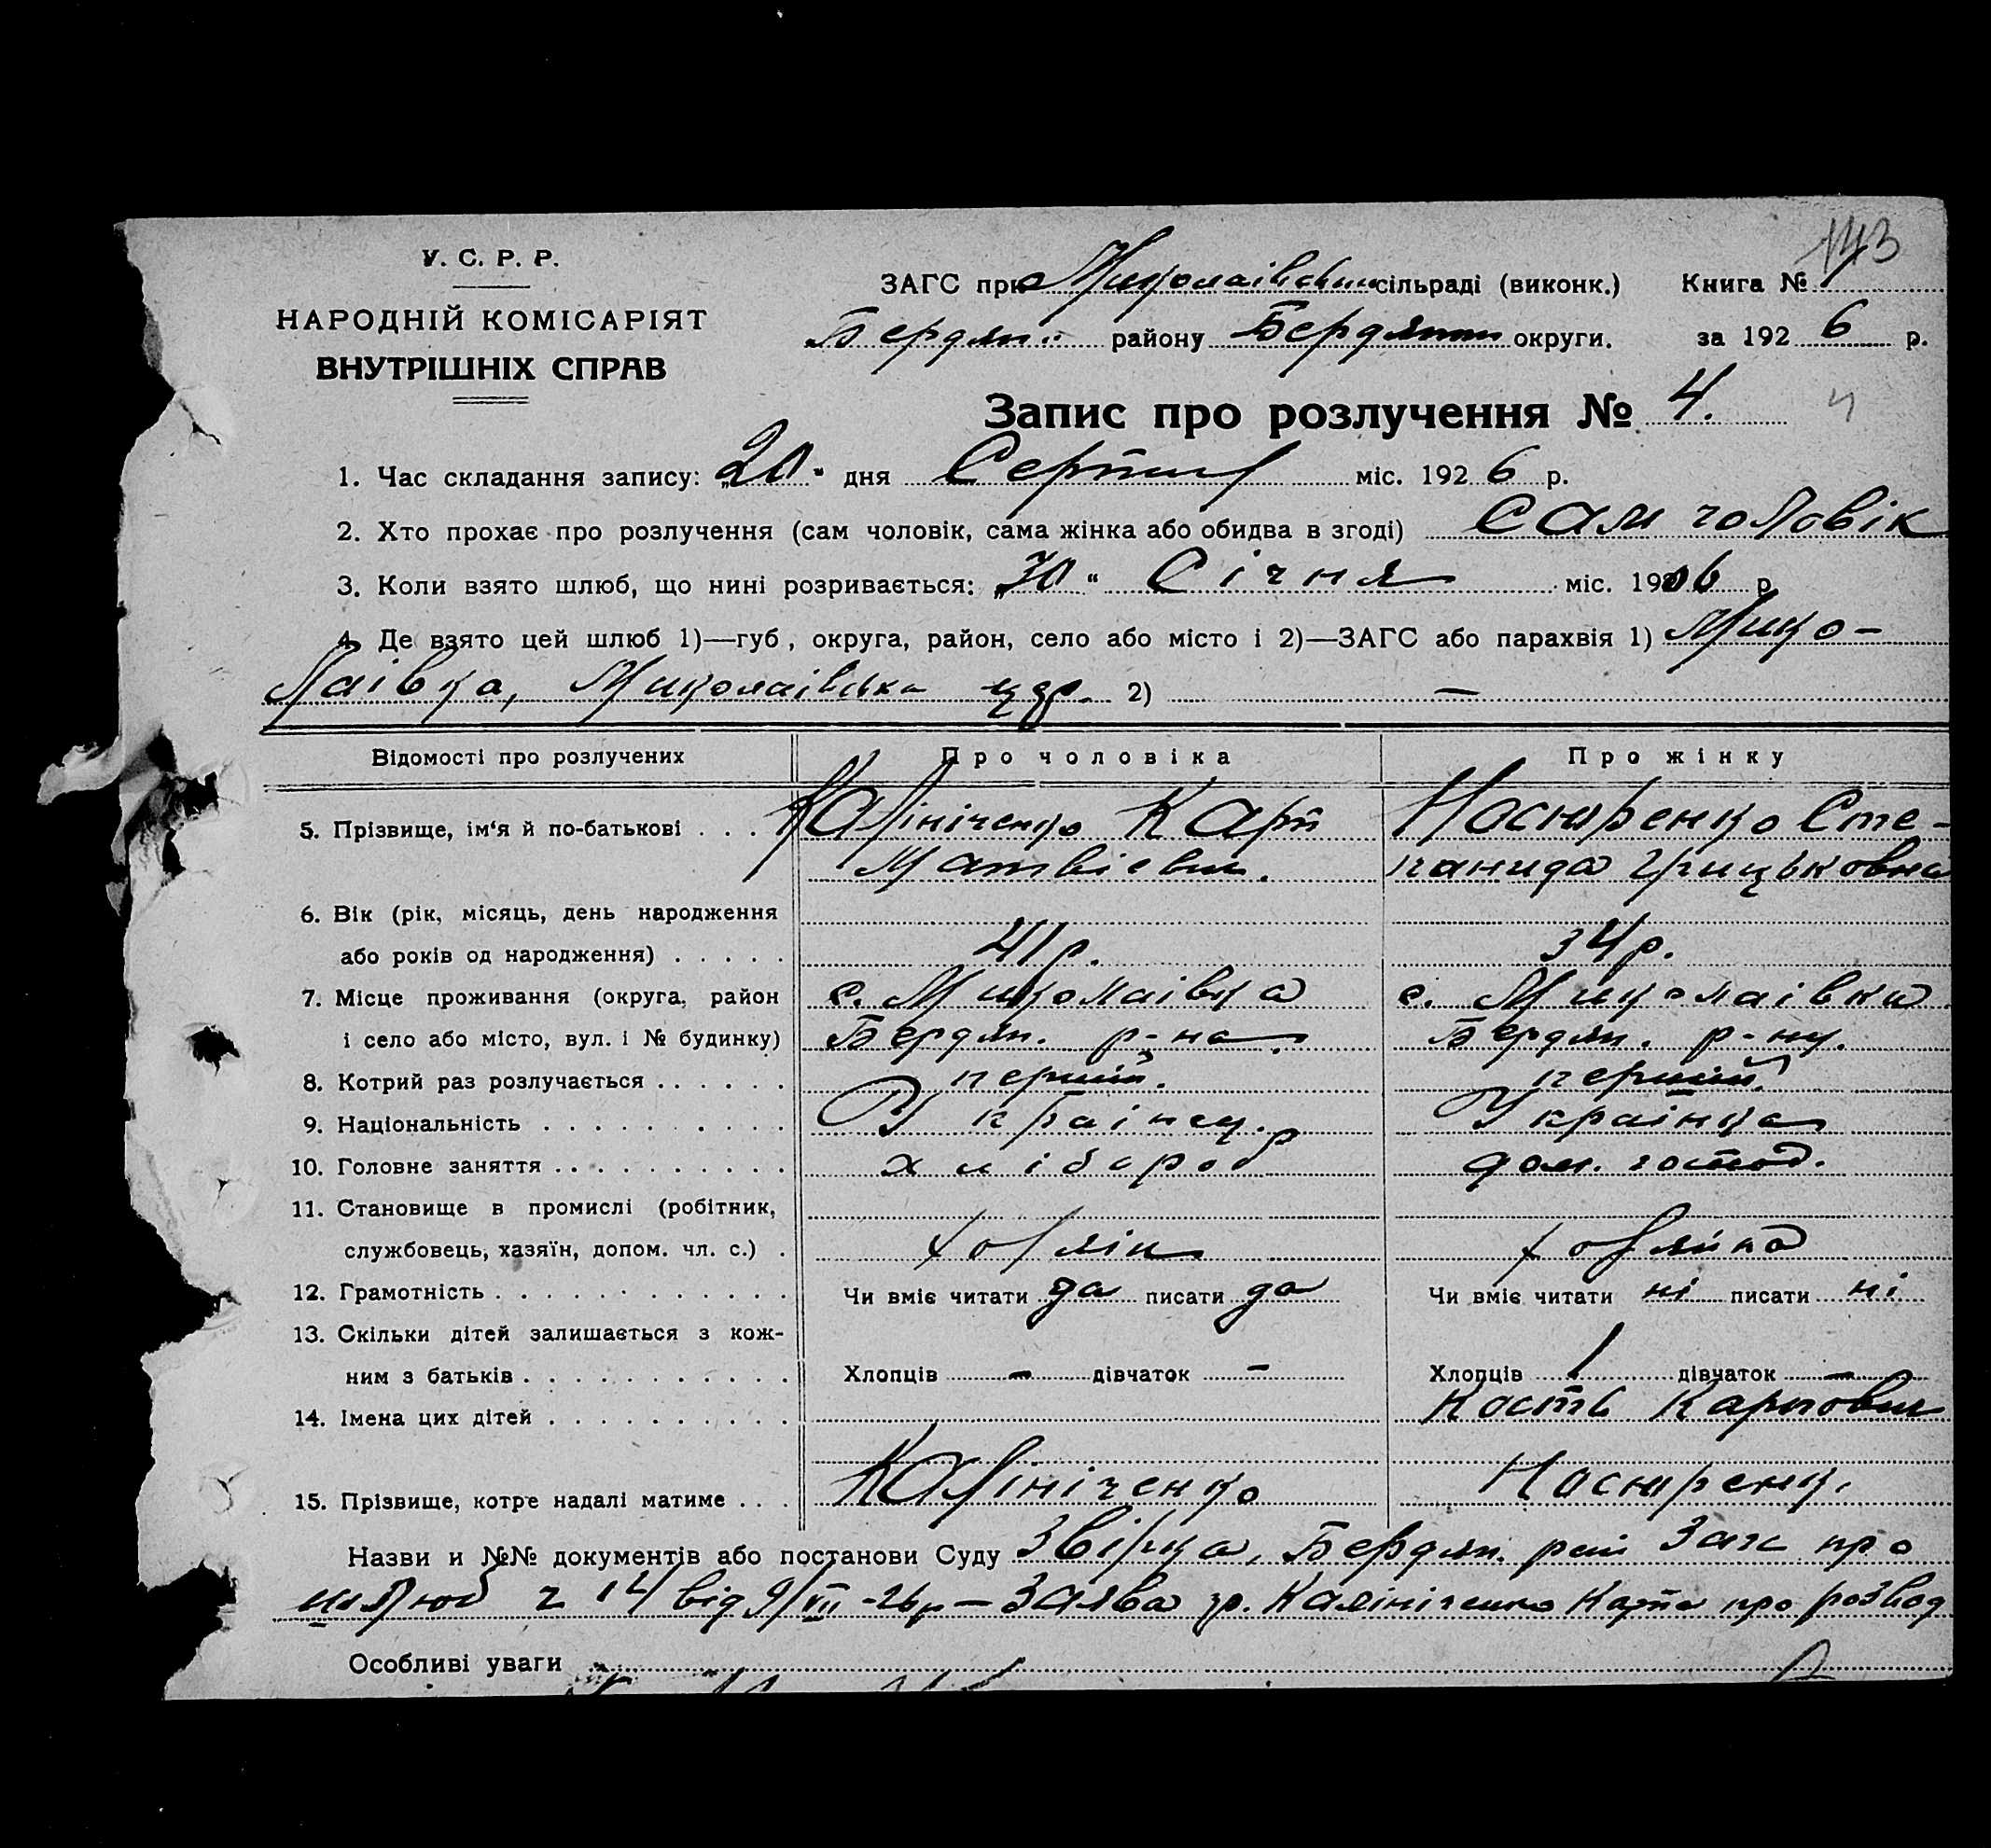 143
У. С. Р. Р.
НАРОДНІЙ КОМІСАРІЯТ
ВНУТРІШНІХ СПРАВ
ЗАГС при Миколаівській сільраді (виконк.) Книга №
Бердян. району Бердянськ округи. за 1926 р.
Запис про розлучення № 4. 4
1. Час складання запису: „20" дня Серпня міс. 1926 р.
2. Хто прохає про розлучення (сам чоловік, сама жінка або обидва в згоді) Сам чоловік
3. Коли взято шлюб, що нині розривається: „30" Січня міс. 1906 р.
4. Де взято цей шлюб 1)—губ, округа, район, село або місто і 2)—ЗАГС або парахвія 1) Мико-
лаівка, Миколаівська 2) —
Відомості про розлучених Про чоловіка Про жінку
5. Прізвище, ім'я й по-батькові . . . Калініченко Карп Носюренко Сте-
Матвієвич. панида Грицьковна
6. Вік (рік, місяць, день народження
або років од народження) . . . . . 41 р. 34 р.
7. Місце проживання (округа, район с. Миколаівка с. Миколаівка
і село або місто, вул. і № будинку) Бердян. р-на Бердян. р-ну.
8. Котрий раз розлучається . . . . . . перший. перший.
9. Національність . . . . . . . . . . Українец. Українка
10. Головне заняття . . . . . . . . . хлібороб дом. господ.
11. Становище в промислі (робітник,
службовець, хазяїн, допом. чл. с.) .
12. Грамотність . . . . . . . . . . . . Чи вміє читати да писати да Чи вміє читати ні писати ні
13. Скільки дітей залишається з кож-
ним з батьків . . . . . . . . . . . Хлопців — дівчаток — Хлопців 1 дівчаток —
14. Імена цих дітей . . . . . . . . . . Кость Карпович
15. Прізвище, котре надалі матиме . . . Калініченко Носюренк.
Назви и №№ документів або постанови Суду Звірка, Бердян. рай Загс про
шлюб 14 від 9/VII-26р — Заява гр. Калініченка Карпа про розвод
Особливі уваги